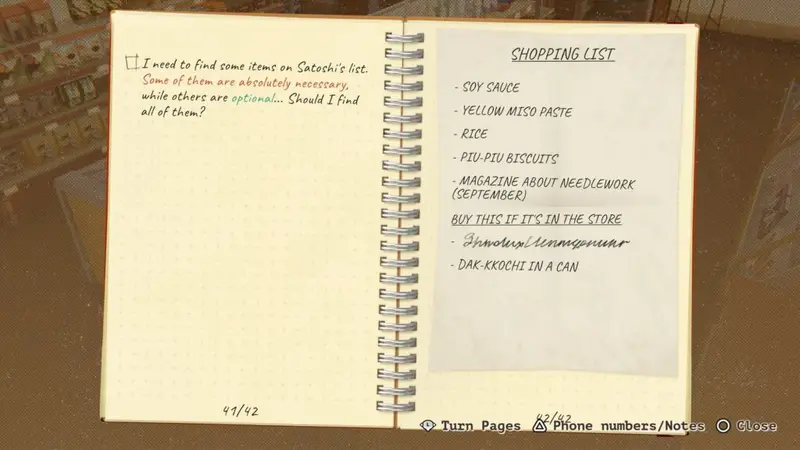 I need to find some items on Satoshi's list.
Some of them are absolutely necessary,
while others are optional... Should I find
all of them?
41/42
SHOPPING LIST
- SOY SAUCE
- YELLOW MISO PASTE
- RICE
- PIU-PIU BISCUITS
- MAGAZINE ABOUT NEEDLEWORK
(SEPTEMBER)
BUY THIS IF IT'S IN THE STORE
-
- DAK-KKOCHI IN A CAN
42/42
Turn Pages Phone numbers/Notes Close